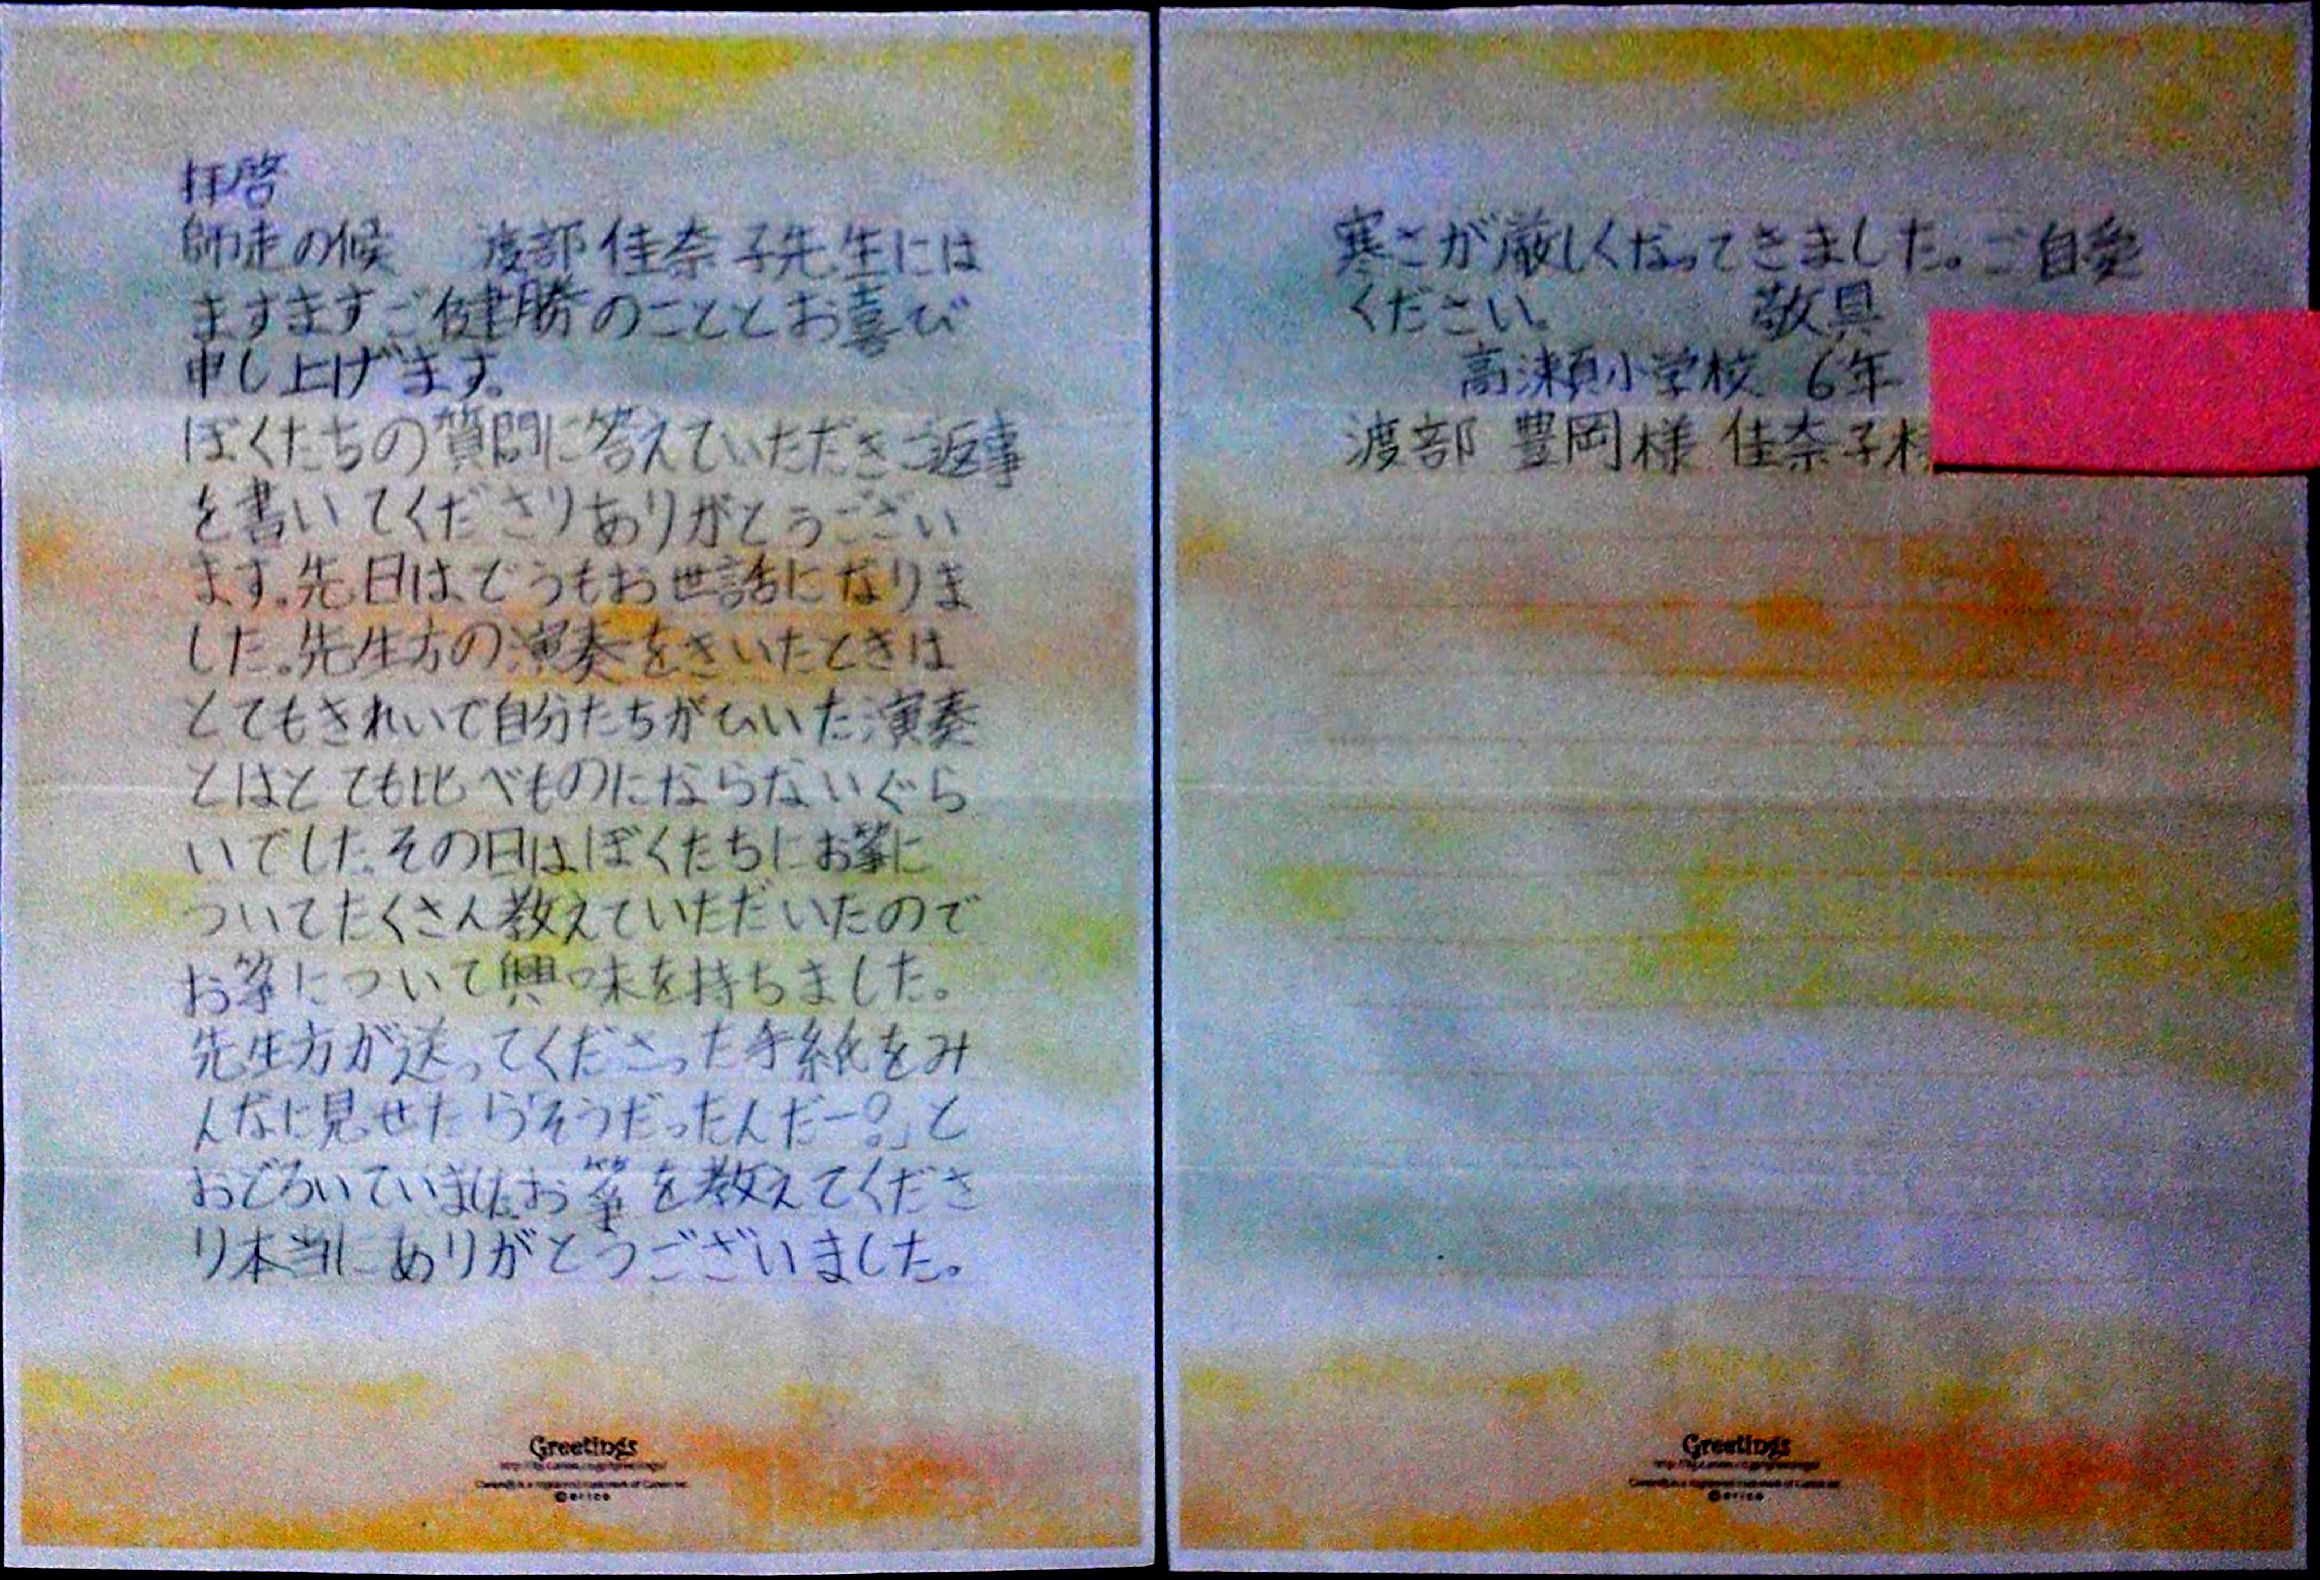 拝啓
師走の候　渡部佳奈子先生には
ますますご健勝のこととお喜び
申し上げます。
ぼくたちの質問に答えていただきご返事
を書いてくださりありがとうござい
ます。先日はどうもお世話になりま
した。先生方の演奏をきいたときは
とてもきれいで自分たちがひいた演奏
とはとても比べものにならないぐら
いでした。その日はぼくたちにお箏に
ついてたくさん教えていただいたので
お箏について興味を持ちました。
先生方が送ってくださった手紙をみ
んなに見せたら「そうだったんだー?。」と
おどろいていました。お箏を教えてくださ
り本当にありがとうございました。
Greetings
©erico
寒さが厳しくなってきました。ご自愛
ください。　敬具
高瀬小学校　6年
渡部 豊岡様 佳奈子様
Greetings
©erico